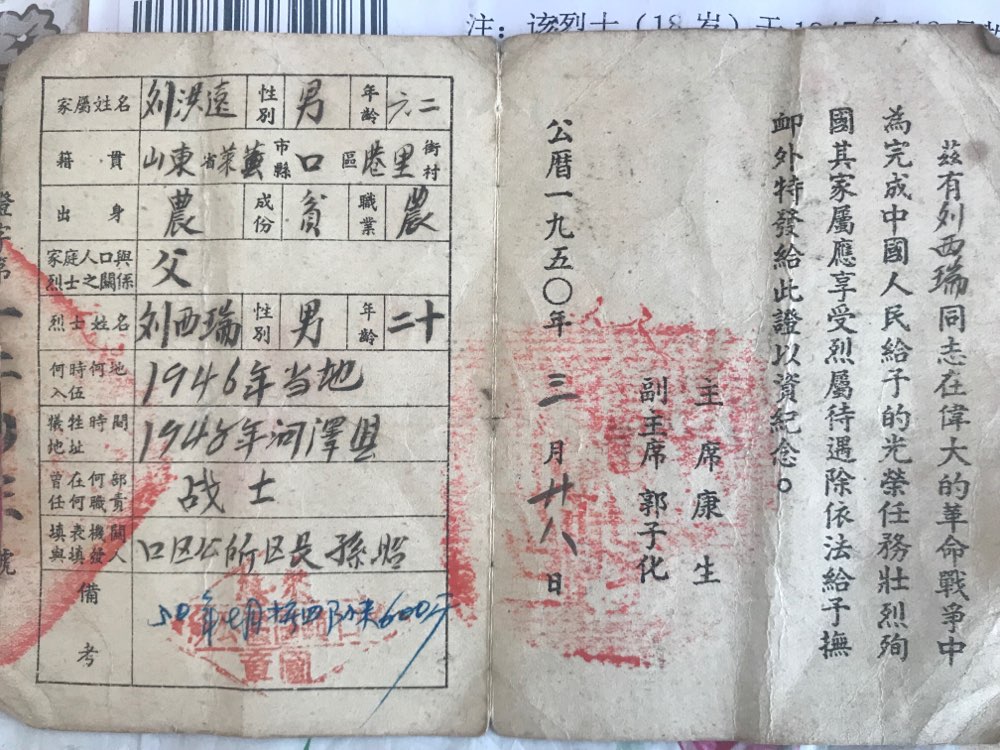 注：该烈士（18岁）于1947年10月
兹有刘西瑞同志在偉大的革命戰爭中
為完成中國人民給予的光榮任務壯烈殉
國其家屬應享受烈屬待遇除依法給予撫
卹外特發給此證以資紀念。
主席康生
副主席郭子化
公曆一九五〇年三月廿八日
家屬姓名 刘洪遠 性別 男 年齡 六二
籍貫 山東省萊蕪市縣口區港里街村
出身 農 成份 貧 職業 農
家庭人口與烈士之關係 父
烈士姓名 刘西瑞 性別 男 年齡 二十
何時何地入伍 1946年当地
犠牲時間地址 1948年河澤县
曾在何部任何職責 战士
填表機關與填發人 口区公所区長孫
備考 50年七月 600斤
證字第 號